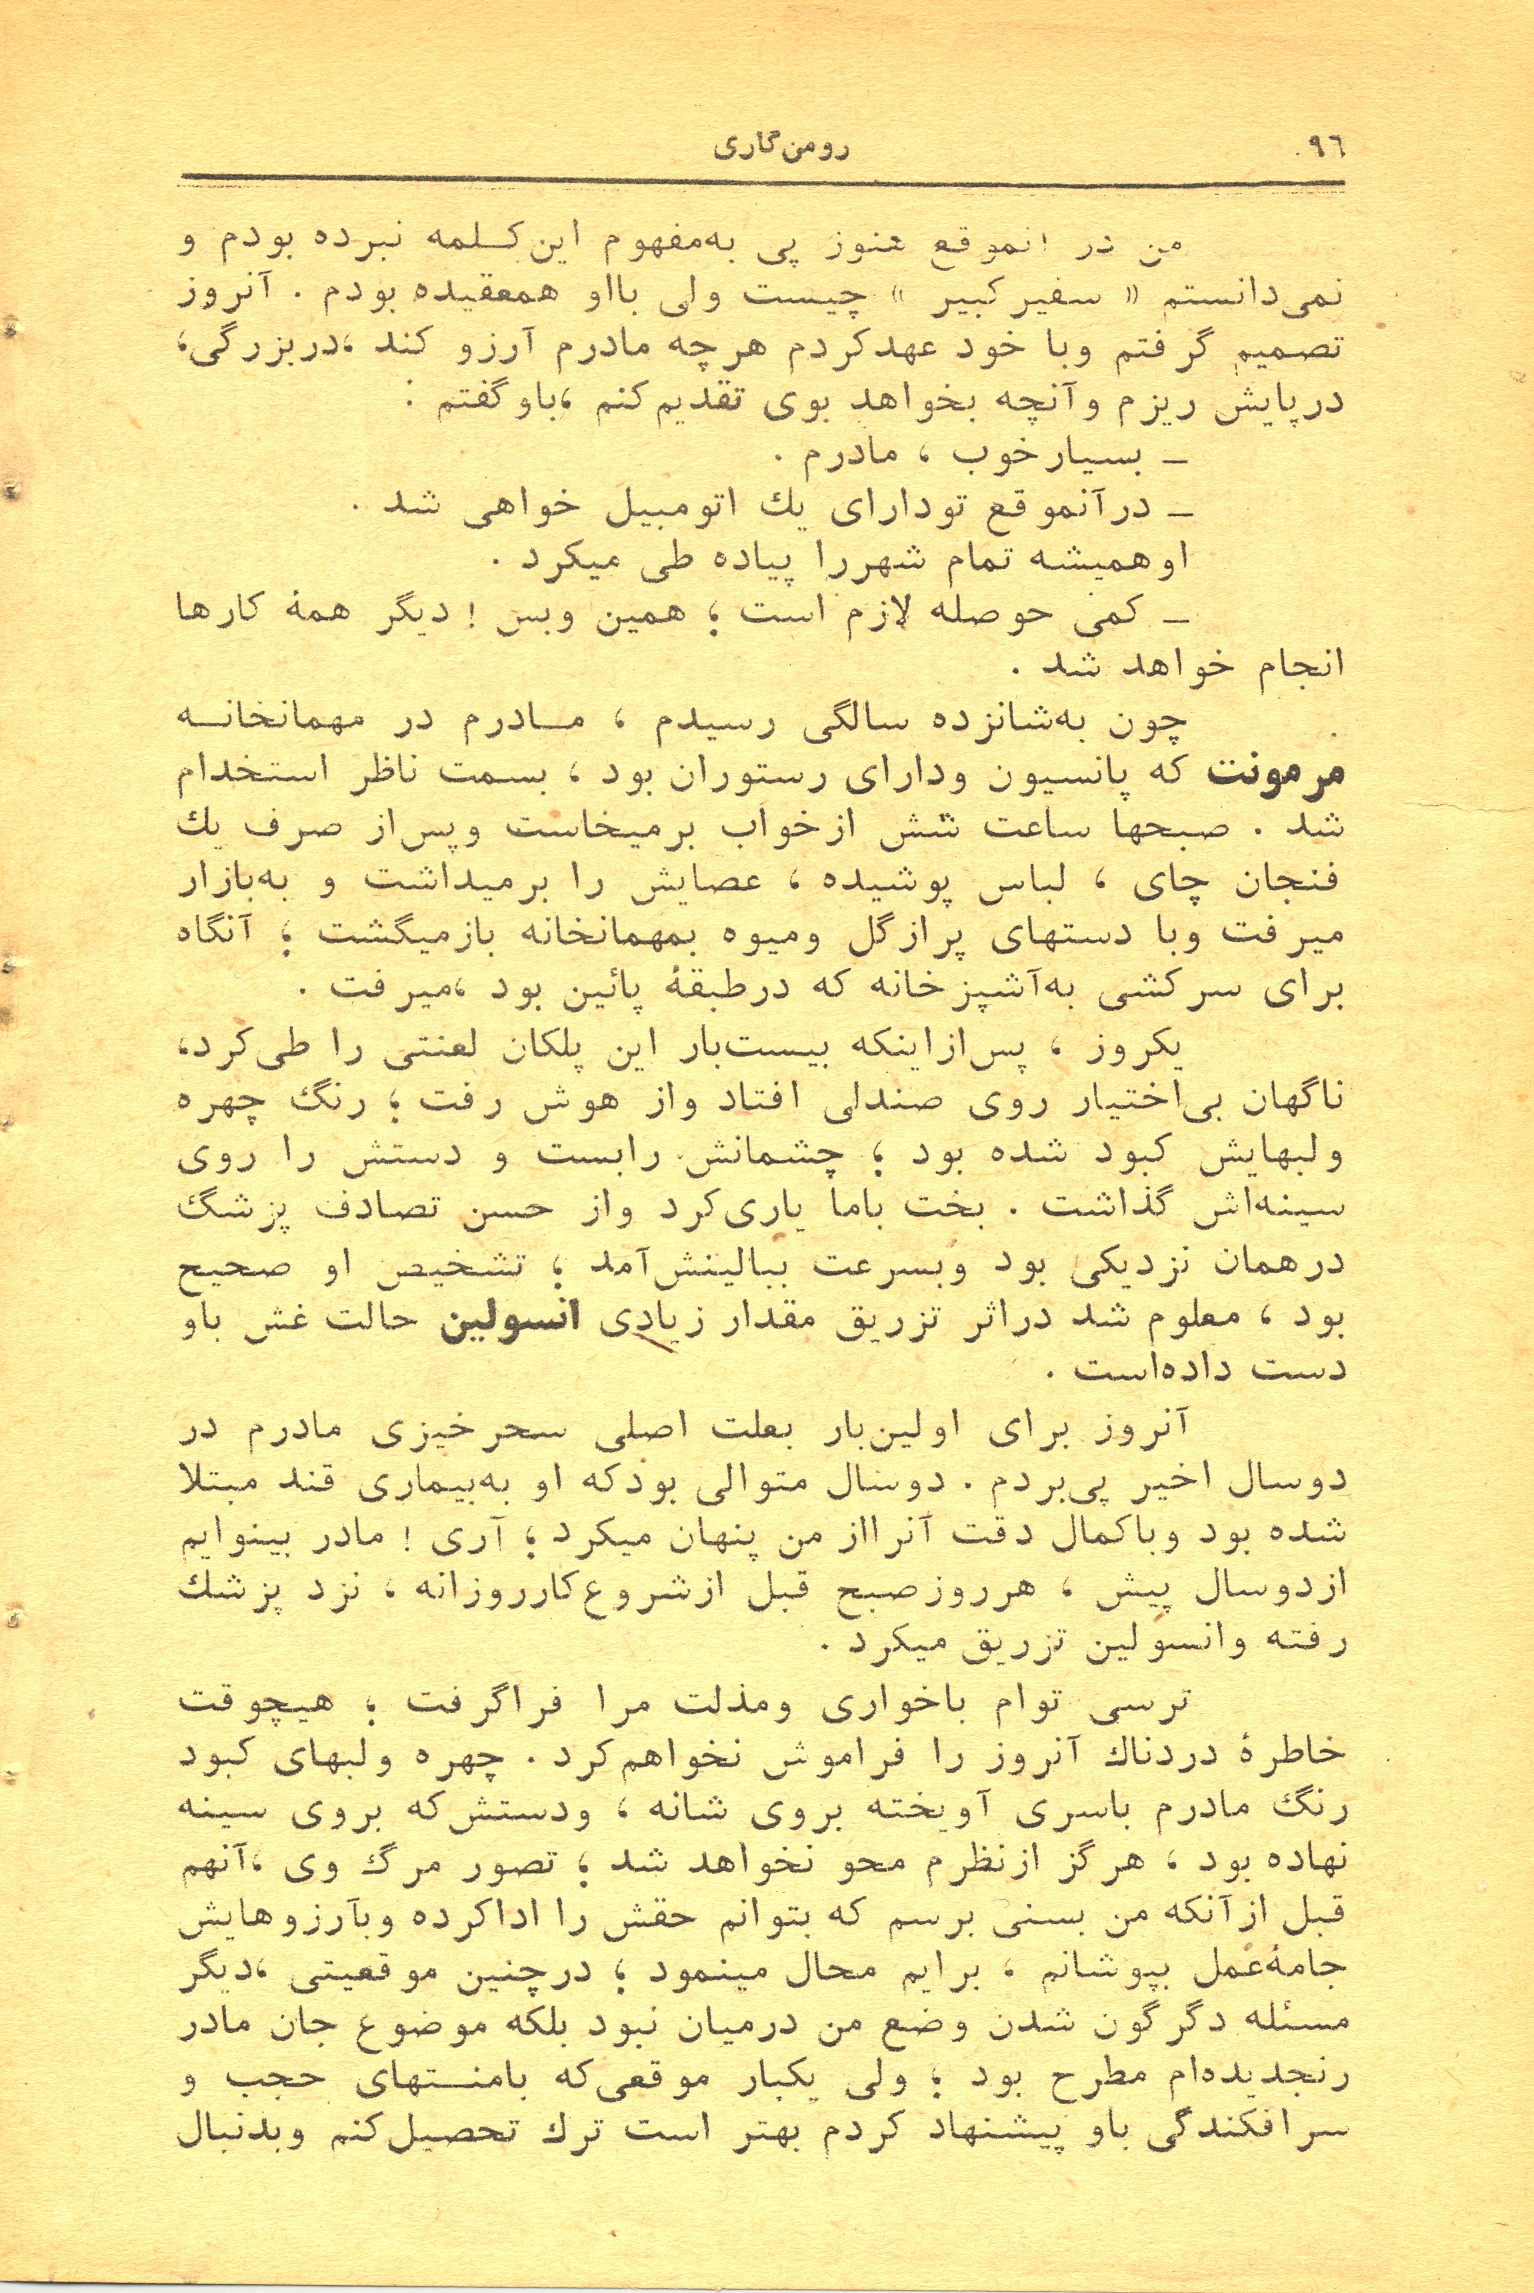 ۹٦ رومن‌گاری
من در آنموقع هنوز پی به‌مفهوم این‌کلمه نبرده بودم و
نمی‌دانستم « سفیر کبیر » چیست ولی بااو همعقیده بودم . آنروز
تصمیم گرفتم وبا خود عهدکردم هرچه مادرم آرزو کند ،دربزرگی،
درپایش ریزم وآنچه بخواهد بوی تقدیم‌کنم ،باوگفتم :
ـ بسیارخوب ، مادرم .
ـ درآنموقع تودارای یك اتومبیل خواهی شد .
اوهمیشه تمام شهررا پیاده طی میکرد .
ـ کمی حوصله لازم است ؛ همین وبس ! دیگر همهٔ کارها
انجام خواهد شد .
چون به‌شانزده سالگی رسیدم ، مـادرم در مهمانخانـه
مرمونت که پانسیون ودارای رستوران بود ، بسمت ناظر استخدام
شد . صبحها ساعت شش ازخواب برمیخاست وپس‌از صرف یك
فنجان چای ، لباس پوشیده ، عصایش را برمیداشت و به‌بازار
میرفت وبا دستهای پرازگل ومیوه بمهمانخانه بازمیگشت ؛ آنگاه
برای سرکشی به‌آشپزخانه که درطبقهٔ پائین بود ،میرفت .
یکروز ، پس‌ازاینکه بیست‌بار این پلکان لعنتی را طی‌کرد،
ناگهان بی‌اختیار روی صندلی افتاد واز هوش رفت ؛ رنگ چهره
ولبهایش کبود شده بود ؛ چشمانش رابست و دستش را روی
سینه‌اش گذاشت . بخت باما یاری‌کرد واز حسن تصادف پزشگ
درهمان نزدیکی بود وبسرعت ببالینش‌آمد ؛ تشخیص او صحیح
بود ، معلوم شد دراثر تزریق مقدار زیادی انسولین حالت غش باو
دست داده‌است .
آنروز برای اولین‌بار بعلت اصلی سحرخیزی مادرم در
دوسال اخیر پی‌بردم . دوسال متوالی بودکه او به‌بیماری قند مبتلا
شده بود وباکمال دقت آنرااز من پنهان میکرد ؛ آری ! مادر بینوایم
ازدوسال پیش ، هرروزصبح قبل ازشروع‌کارروزانه ، نزد پزشك
رفته وانسولین تزریق میکرد .
ترسی توام باخواری ومذلت مرا فراگرفت ؛ هیچوقت
خاطرهٔ دردناك آنروز را فراموش نخواهم‌کرد . چهره ولبهای کبود
رنگ مادرم باسری آویخته بروی شانه ، ودستش‌که بروی سینه
نهاده بود ، هرگز ازنظرم محو نخواهد شد ؛ تصور مرگ وی ،آنهم
قبل ازآنکه من بسنی برسم که بتوانم حقش را اداکرده وبآرزوهایش
جامهٔ‌عمل بپوشانم ، برایم محال مینمود ؛ درچنین موقعیتی ،دیگر
مسئله دگرگون شدن وضع من درمیان نبود بلکه موضوع جان مادر
رنجدیده‌ام مطرح بود ؛ ولی یکبار موقعی‌که بامنـتهای حجب و
سرافکندگی باو پیشنهاد کردم بهتر است ترك تحصیل‌کنم وبدنبال